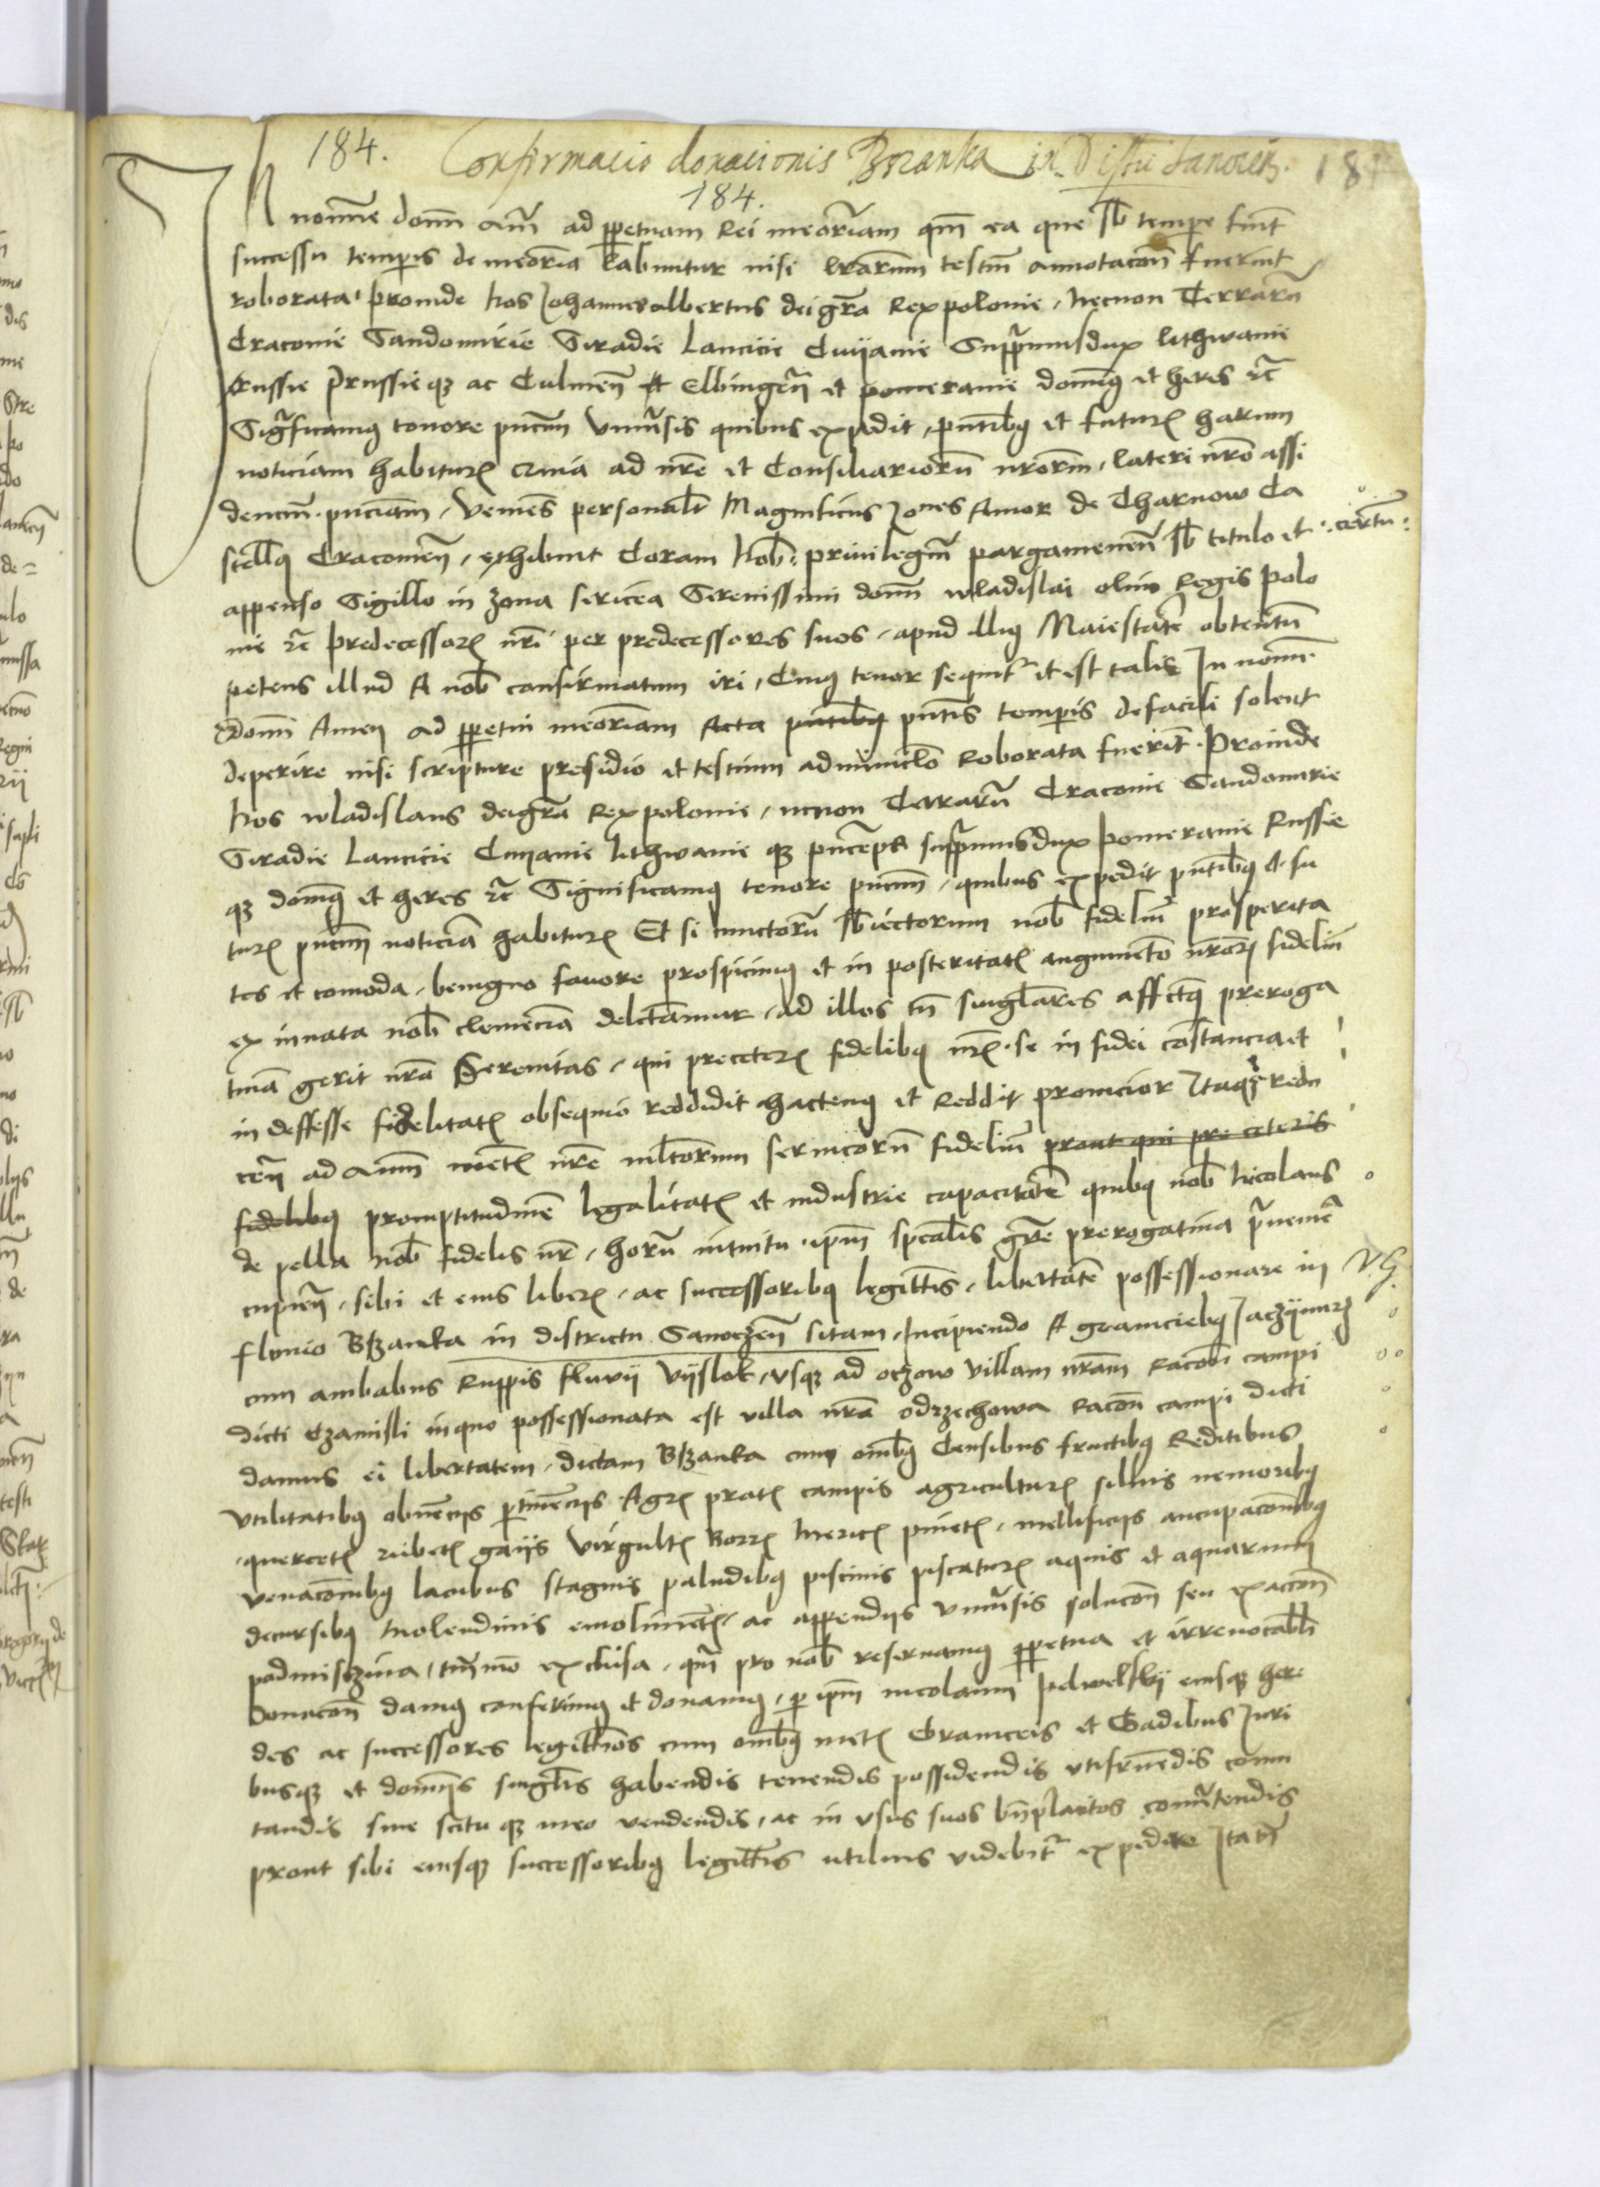 184. Confirmacio donacionis Bzanka in Districtu Sanocien. 184
184.
In nomine domini Amen ad perpetuam Rei memoriam quoniam ea que sub tempore fiunt
successu temporis de memoria labuntur nisi literarum testium annotacione fuerint
roborata. Proinde Nos Johannes albertus dei gratia Rex polonie, Necnon Terrarum
Cracovie Sandomirie Siradie Lancicie Cuijavie Suppremusdux lithwanie
Russie prussieque ac Culmen et Elbingen et pomeranie dominus et heres etc
Significamus tenore presencium Universis quibus expedit, presentibus et futuris harum
noticiam habituris Quia ad nostram et Consiliariorum nostrorum, lateri nostro assi
dencium presenciam, Veniens personaliter Magnificus Johannes Amor de Tharnow Ca
stellanus Cracovien, exhibuit Coram Nobis privilegium pargamenum sub titulo et : certum :
appenso Sigillo in zona sericea Serenissimi domini wladislai olim Regis Polo
nie etc Predecessoris nostri per predecessores suos, apud illius Maiestatem obtentum
petens illud A nobis confirmatum iri, Cuius tenor sequitur et est talis In nomine
domini Amen ad perpetui memoriam Acta presentibus presentis temporis defacili solent
deperire nisi scripture presidio et testium adminiculo Roborata fuerint. Proinde
Nos wladislaus dei gratia Rex polonie, necnon Terrarum Cracovie Sandomirie
Siradie Lancicie Cuyavie lithwanie que princeps suppremusdux Pomeranie Russie
que dominus et heres etc Significamus tenore presencium, quibus expedit presentibus et fu
turis presencium noticiam habituris Et si cunctorum subiectorum nobis fidelium prosperita
tes et comoda, benigno favore prospicimus et in posteritatis augmento nostrorum fidelium
ex innata nobis clemencia delectamur, ad illos tamen singulares affectus preroga
tivam gerit nostra Serenitas, qui preceteris fidelibus nostris se in fidei constancia et
in deffesse fidelitatis obsequio reddidit hactenus et Reddit promcior Itaque redu
cen ad Animum mentis nostre multorum serviciorum fidelium prout qui pre ceteris
fidelibus promptitudinem legalitatis et industrie capacitatem quibus nobis Nicolaus
de pella Nobis fidelis noster, horum intuitu ipsum specialis gracie prerogativa prevenire
cupien, sibi et eius liberis, ac successoribus legittimis, libertatem possessionare in N.G.
fluvio Bzanka in districtu Sanoczen sitam, Incipiendo A graniciebus Jaczijmirz
cum ambabus Ruppis fluvij Vijslok, usque ad oczow villam nostram Racone campi
dicti Czamisli in quo possessionata est villa nostra odrzechowa Racone campi dicti
damus ei libertatem, dictam Bzanka cum omnibus Censibus fructibus Reditibus
Utilitatibus obvencijs pertinencijs Agris pratis campis agriculturis silvis nemoribus
quercetis rubetis gaijs Virgultis Borris Mericis pinetis, mellificijs aucupacionibus
venacionibus lacubus stagnis paludibus piscinis piscaturis aquis et aquarum
decursibus Molendinis emolimentis, ac appendijs universis solucione seu exaccione
podmiszczina, tantummodo exclusa, quam pro nobis reservamus perpetua et irrevocabili
Donacione damus conferimus et donamus, per ipsum nicolaum eiusque here
des ac successores legittimos cum omnibus metis Graniceis et Gadibus Juri
busque et dominijs singulis habendis tenendis possidendis utifruendis comu
tandis sine scitu que meo vendendis, ac in usus suos beneplacitos convertendis
prout sibi eiusque successoribus legittimis utilius videbitur expedire Itatamen